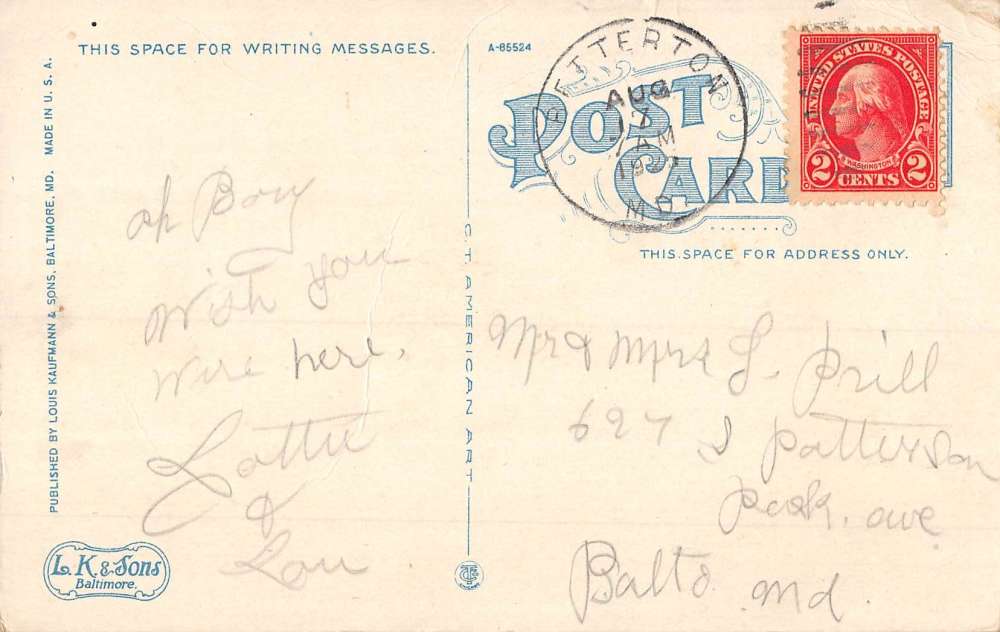 THIS SPACE FOR WRITING MESSAGES.
A-85524
POST CARD
BETTERTON
AUG
17
AM
MD.
UNITED STATES POSTAGE
WASHINGTON
2 CENTS 2
THIS SPACE FOR ADDRESS ONLY.
PUBLISHED BY LOUIS KAUFMANN & SONS, BALTIMORE, MD. MADE IN U. S. A.
C. T. AMERICAN ART
oh Boy
Wish you
were here.
Lottie
&
Lou
Mr & Mrs L. Prill
627 S Patterson
Park. ave
Balto. Md.
L. K. & Sons
Baltimore.